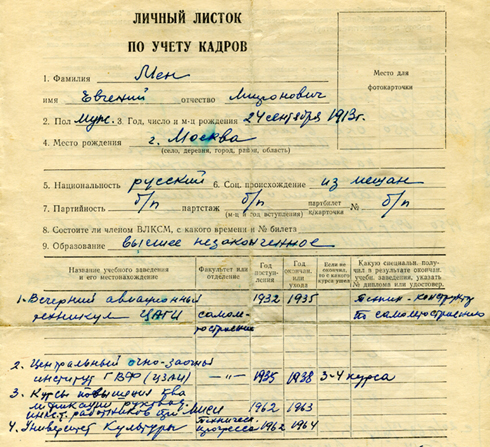 ЛИЧНЫЙ ЛИСТОК
ПО УЧЕТУ КАДРОВ
Место для
фотокарточки
1. Фамилия Мен
имя Евгений отчество Миронович
2. Пол Муж. 3. Год, число и м-ц рождения 24 сентября 1913г.
4. Место рождения г. Москва
(село, деревня, город, район, область)
5. Национальность русский 6. Соц. происхождение из мещан
7. Партийность б/п партстаж б/п партбилет № б/п
(м-ц и год вступления) к/карточка
8. Состоите ли членом ВЛКСМ, с какого времени и № билета
9. Образование высшее незаконченное
Название учебного заведения и его местонахождение
Факультет или отделение
Год поступления
Год окончан. или ухода
Если не окончил, то с какого курса ушел
Какую специальн. получил в результате окончан. учебн. заведения, указать № диплома или удостовер.
1. Вечерний авиационный 1932 1935 техник-конструкт
техникум ЦАГИ самоле- по самолетостроению
тостроение
2. Центральный очно-заочный
институт ГВФ (ЦЗАИ) —"— 1935 1938 3-4 курса
3. Курсы повышения ква
лификации руковод.
инж. работников при 1962 1963
4. Университет Культуры технического
прогресса 1962 1964